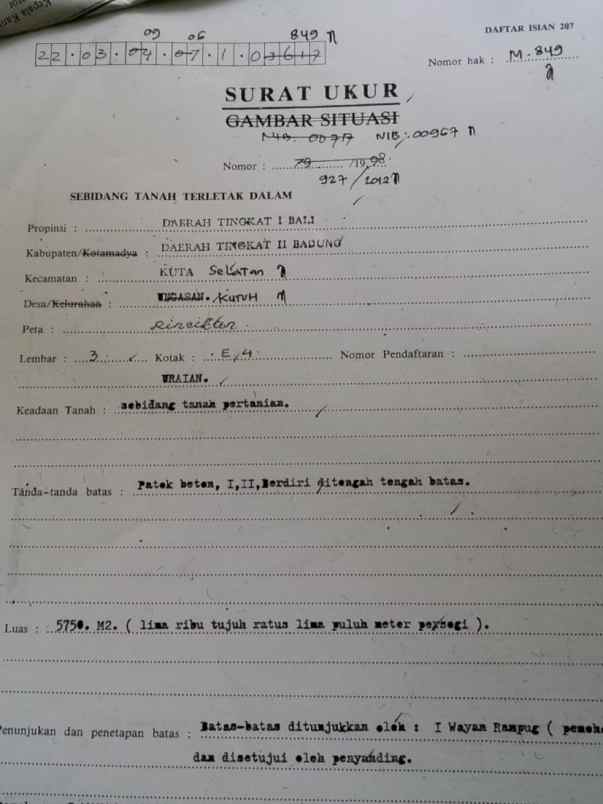 DAFTAR ISIAN 207
09 06 849
22.03.04.07.1.03617
Nomor hak : M. 849
SURAT UKUR
GAMBAR SITUASI
NIB. 00967
Nomor : 79 /1998
927/2012
SEBIDANG TANAH TERLETAK DALAM
Propinsi : DAERAH TINGKAT I BALI
Kabupaten/Kotamadya : DAERAH TINGKAT II BADUNG
Kecamatan : KUTA SELATAN
Desa/Kelurahan : UNGASAN. KUTUH
Peta :
Lembar : 3 Kotak : E, 4 Nomor Pendaftaran :
URAIAN.
Keadaan Tanah : sebidang tanah pertanian.
Tanda-tanda batas : Patok beton, I,II,Berdiri ditengah tengah batas.
Luas : 5750. M2. ( lima ribu tujuh ratus lima puluh meter persegi ).
Penunjukan dan penetapan batas : Batas-batas ditunjukkan oleh : I Wayan Rampug ( pemoh
dan disetujui oleh penyanding.